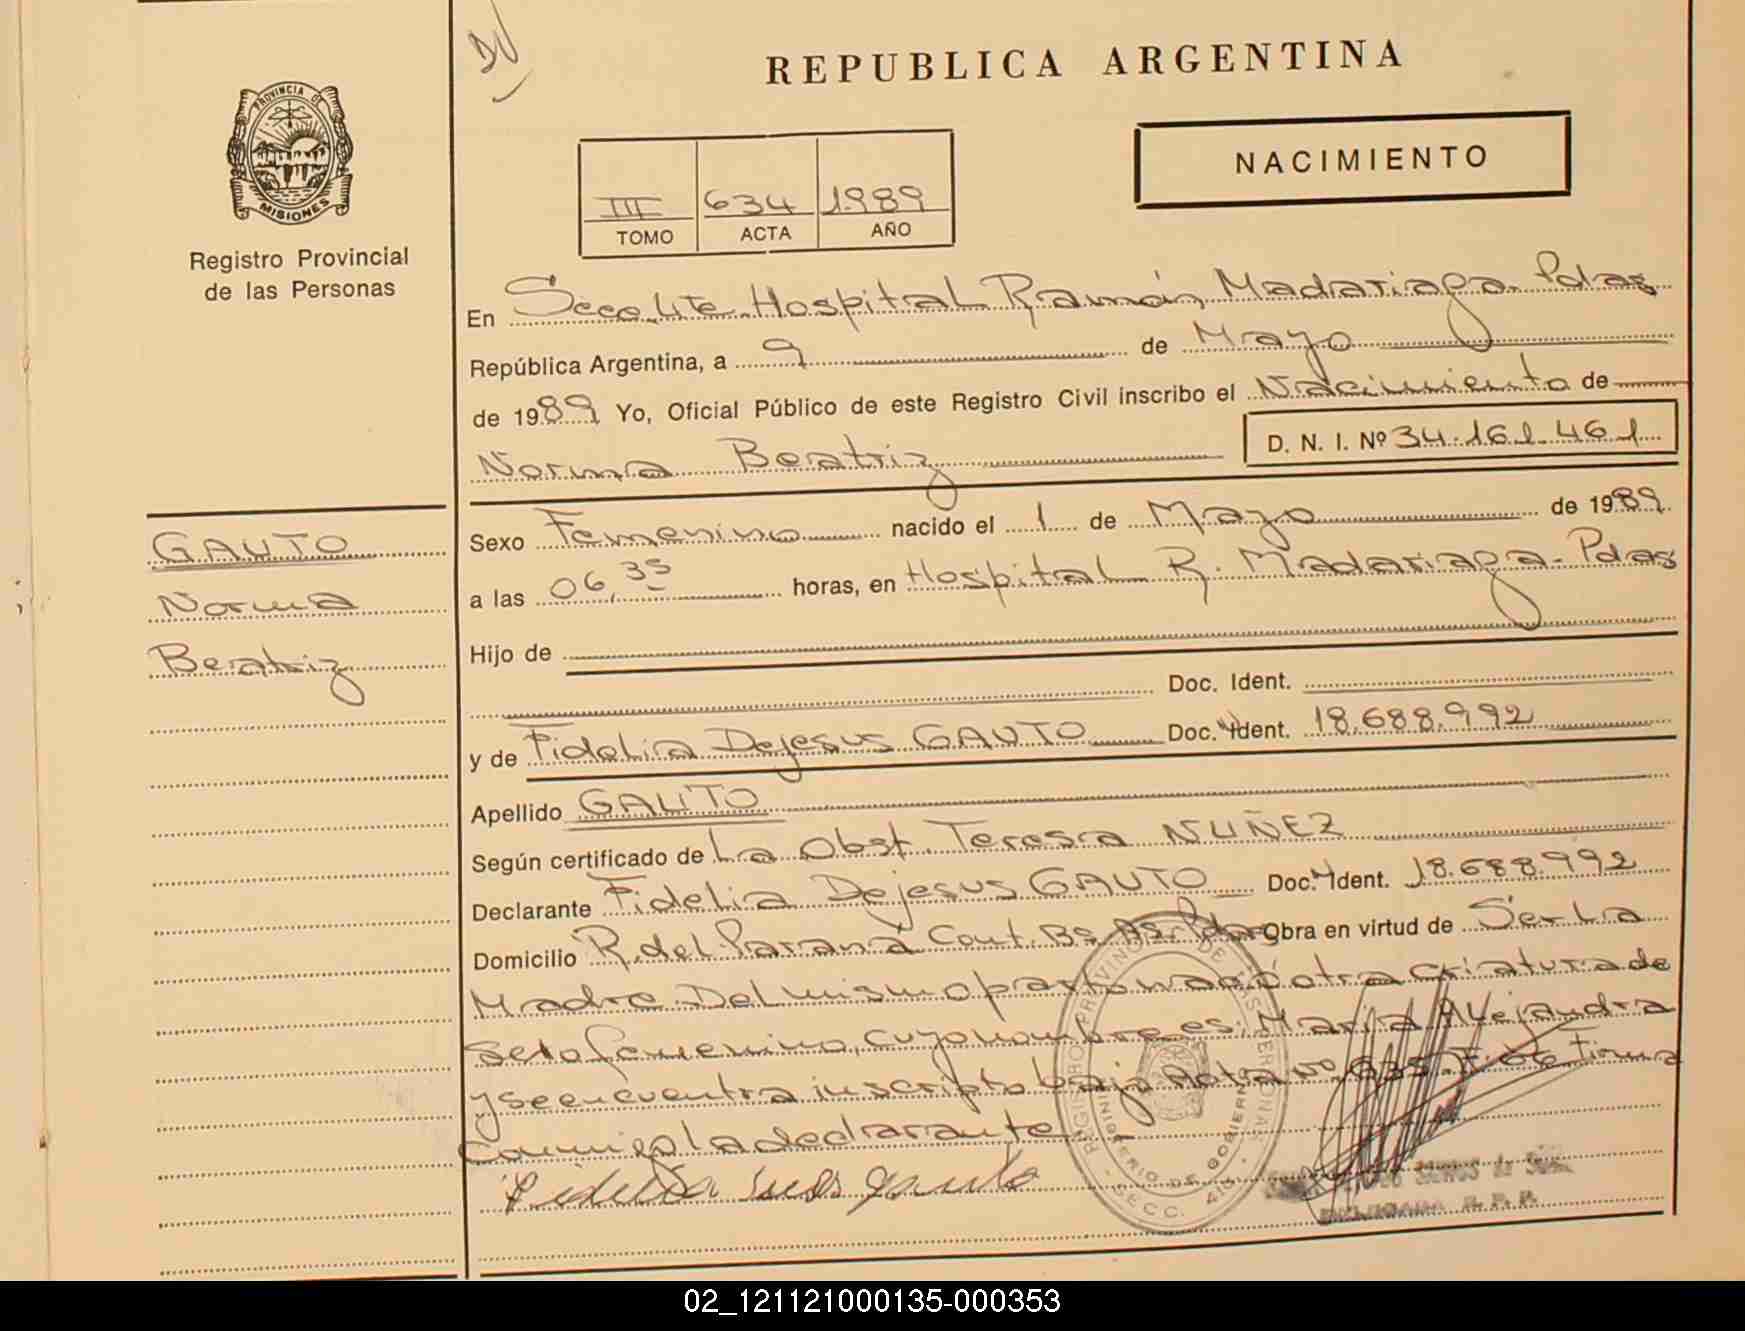 DV
REPUBLICA ARGENTINA
PROVINCIA DE
MISIONES
Registro Provincial
de las Personas
NACIMIENTO
III 634 1989
TOMO ACTA AÑO
En Secc. Hospital Ramón Madariaga. Pdas
República Argentina, a 9 de Mayo
de 1989 Yo, Oficial Público de este Registro Civil inscribo el Nacimiento de
Norma Beatriz D. N. I. Nº 34.161.461
GAUTO
Norma
Beatriz
Sexo Femenino nacido el 1 de Mayo de 1989
a las 06,35 horas, en Hospital R. Madariaga. Pdas
Hijo de
Doc. Ident.
y de Fidelia Dejesus GAUTO Doc. Ident. 18.688.992
Apellido GAUTO
Según certificado de La Obst. Teresa NUÑEZ
Declarante Fidelia Dejesus GAUTO Doc. Ident. 18.688.992
Domicilio R. del Paraná Cont. Bs. As. Pdas Obra en virtud de Ser La
Madre. Del mismo parto nació otra criatura de
sexo femenino, cuyo nombre es: María Alejandra
y se encuentra inscripto bajo Acta nº 635. F. 66 Firma
conmigo la declarante
Fidelia Jesus Gauto
REGISTRO PROVINCIAL DE LAS PERSONAS
MINISTERIO DE GOBIERNO
SECC.
DELEGADA R. P. P.
02_121121000135-000353